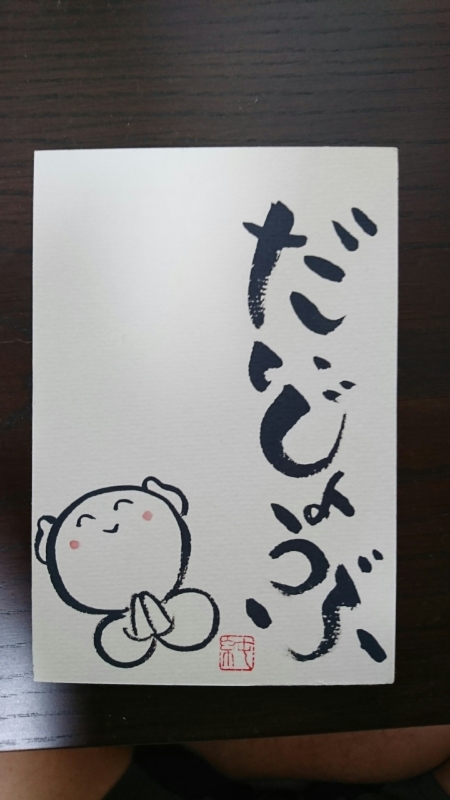 だいじょうぶ
純